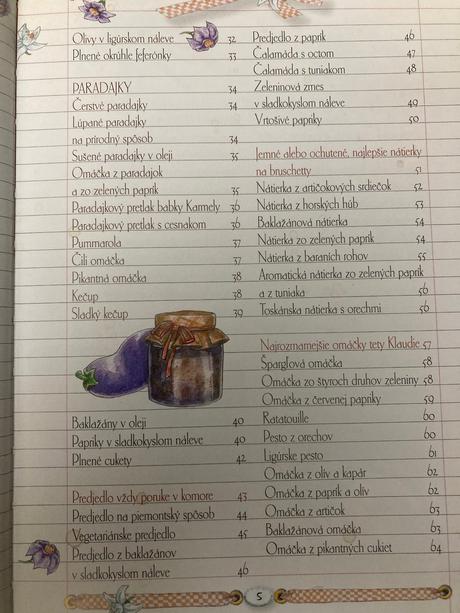 Olivy v ligúrskom náleve 32
Plnené okrúhle feferónky 33
PARADAJKY 34
Čerstvé paradajky 34
Lúpané paradajky
na prírodný spôsob 34
Sušené paradajky v oleji 35
Omáčka z paradajok
a zo zelených paprík 35
Paradajkový pretlak babky Karmely 36
Paradajkový pretlak s cesnakom 36
Pummarola 37
Čili omáčka 37
Pikantná omáčka 38
Kečup 38
Sladký kečup 39
Baklažány v oleji 40
Papriky v sladkokyslom náleve 40
Plnené cukety 42
Predjedlo vždy poruke v komore 43
Predjedlo na piemontský spôsob 44
Vegetariánske predjedlo 45
Predjedlo z baklažánov
v sladkokyslom náleve 46
Predjedlo z paprík 46
Čalamáda s octom 47
Čalamáda s tuniakom 48
Zeleninová zmes
v sladkokyslom náleve 49
Vrtošivé papriky 50
Jemné alebo ochutené, najlepšie nátierky
na bruschetty 51
Nátierka z artičokových srdiečok 52
Nátierka z horských húb 53
Baklažánová nátierka 54
Nátierka zo zelených paprík 54
Nátierka z baraních rohov 55
Aromatická nátierka zo zelených paprík
a z tuniaka 56
Toskánska nátierka s orechmi 56
Najrozmarnejšie omáčky tety Klaudie 57
Špargľová omáčka 58
Omáčka zo štyroch druhov zeleniny 58
Omáčka z červenej papriky 59
Ratatouille 60
Pesto z orechov 60
Ligúrske pesto 61
Omáčka z olív a kapár 62
Omáčka z paprík a olív 62
Omáčka z artičok 63
Baklažánová omáčka 63
Omáčka z pikantných cukiet 64
5